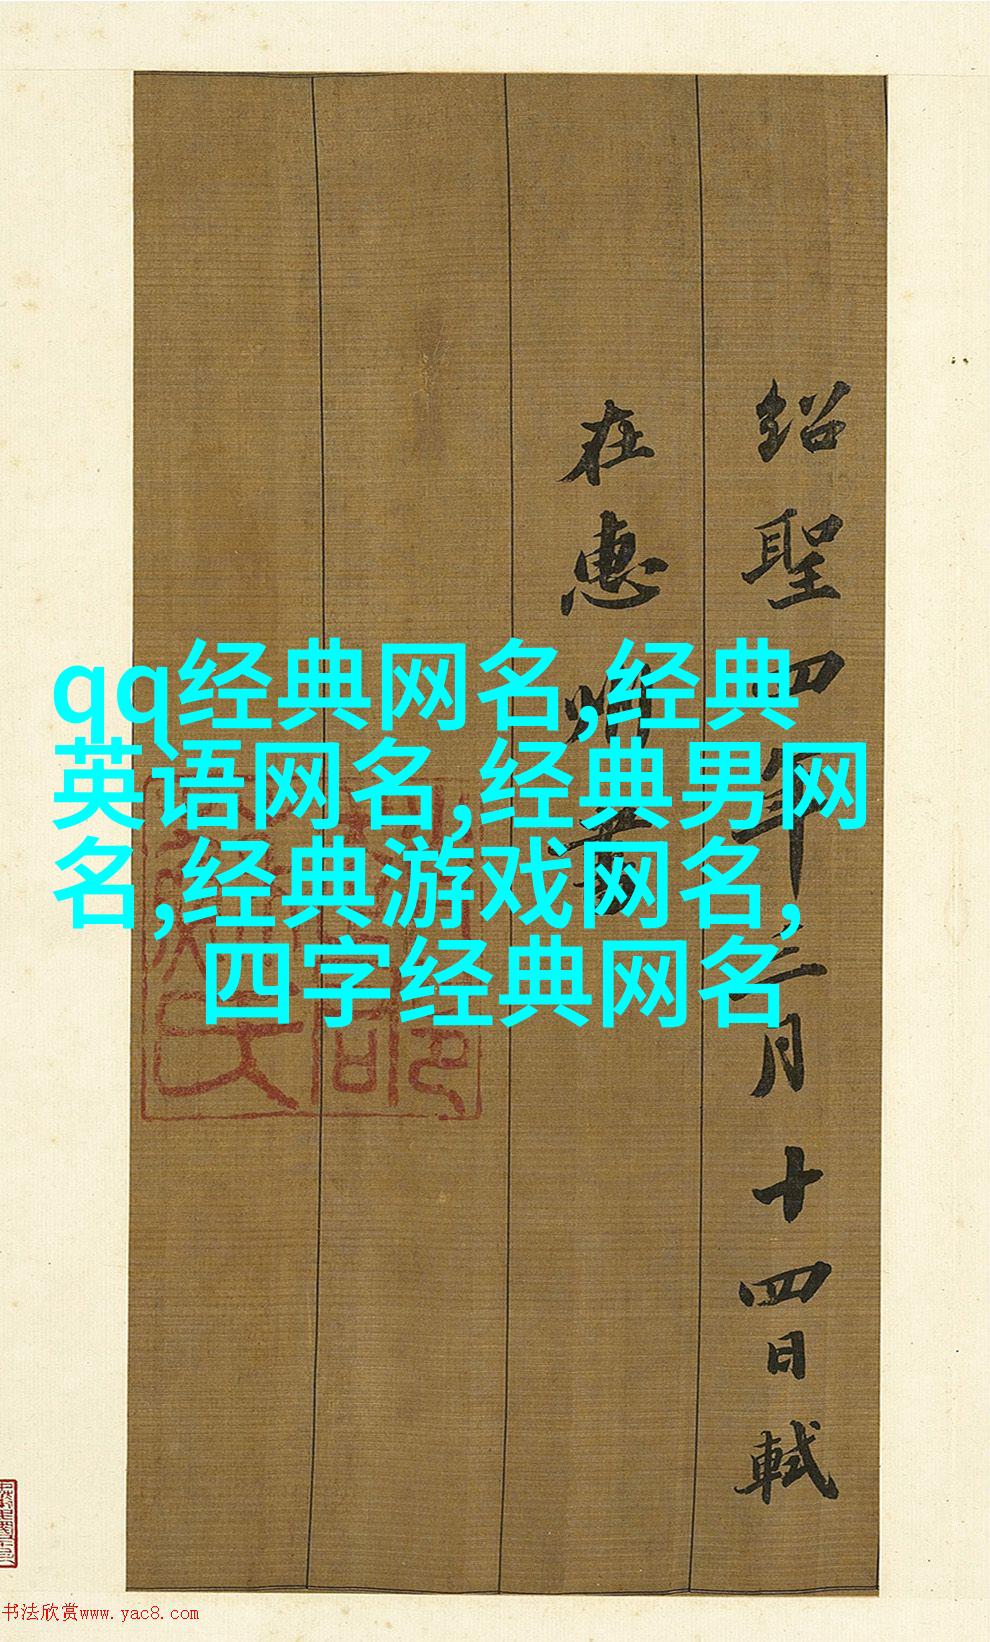 qq经典网名,经典
英语网名,经典男网
名,经典游戏网名,
四字经典网名
紹聖四年三月十四日軾
在惠州書
书法欣赏www.yac8.com